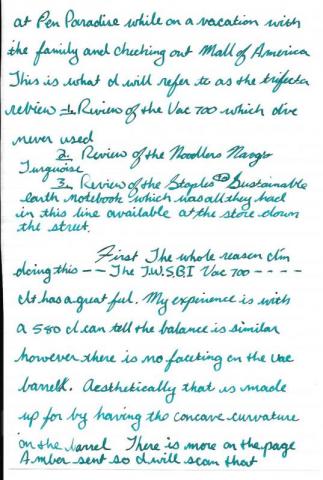 at Pen Paradise while on a vacation with
the family and checking out Mall of America
This is what I will refer to as the trifecta
review 1. Review of the Vac 700 which I've
never used
2. Review of the Noodlers Navajo
Turquoise
3. Review of the Staples Sustainable
earth notebook which was all they had
in this line available at the store down
the street.
First The whole reason I'm
doing this -- The T.W.S.B.I Vac 700 ----
It has a great feel. My experience is with
a 580 I can tell the balance is similar
however there is no faceting on the Vac
barrel. Aesthetically that is made
up for by having the concave curvature
on the barrel There is more on the page
Amber sent so I will scan that